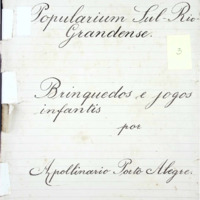 Popularium Sul-Rio-
Grandense.
3
Brinquedos e jogos
infantis
por
Apollinario Porto Alegre.